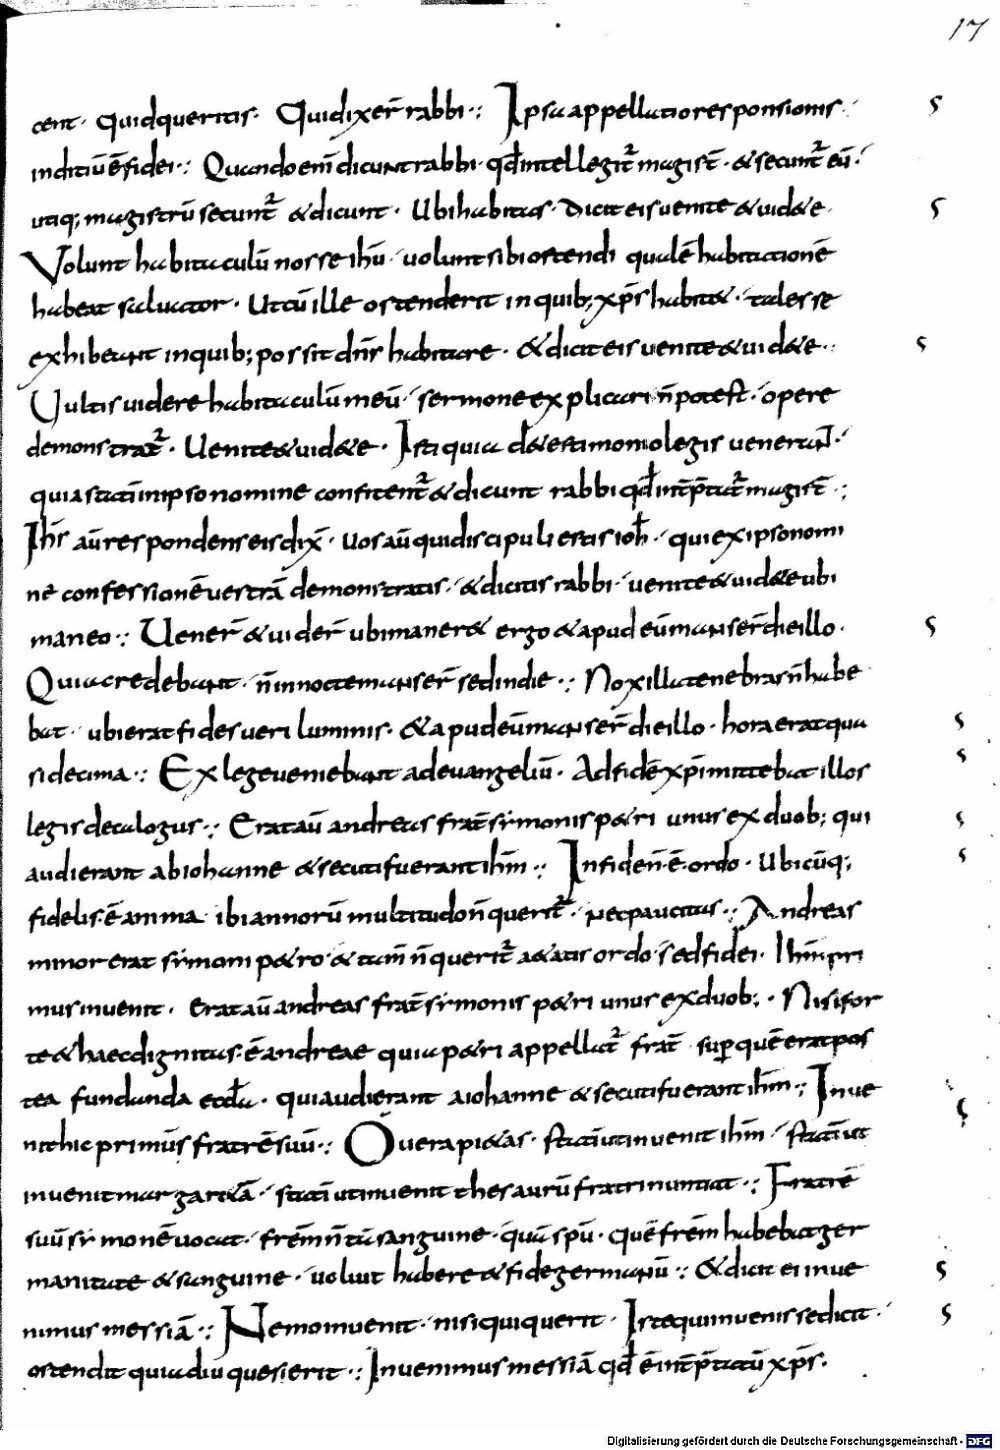 17
cent· quidqueritis· Quidixer̄ rabbi·: Ipsa appellatio responsionis·
inditiū ē fidei·: Quando eni dicunt rabbi· qd̄ intellegit̄ magist̄· & secunt̄ eū·
utiq; magistrū secunt̄ & dicunt· Ubi habitas· Dicit eis uenite & uid&e·
Volunt habitaculū nosse ihū· uolunt sibi ostendi qualē habitationē
habeat saluator· Ut cū ille ostenderit in quib; xp̄s habit&· tales se
exhibeant in quib; possit dn̄s habitare· & dicit eis uenite & uid&e·
Uultis uidere habitaculū meū· sermone explicari n̄ potest· opere
demonstrat̄· Uenite & uid&e· Isti quia d& estimonio legis uenerant·
quia statī in ipso nomine confitent̄ & dicunt rabbi qd̄ int̄p̄tat̄ magist̄·;
Ihs̄ aū respondens eis dix̄· Uos aū qui discipuli estis ioh̄· qui ex ipso nomi
ne confessionē uestrā demonstratis· & dicitis rabbi· uenite & uid&e ubi
maneo·: Uener̄ & uider̄ ubi maner& ergo & apud eū manser̄ die illo·
Quia credebant· n̄ in nocte manser̄ sed in die·: Nox illa tenebras n̄ habe
bat· ubi erat fides ueri luminis· & apud eū manser̄ die illo· hora erat qua
si decima·: Ex lege ueniebant ad euangeliū· Ad fidē xp̄i mittebat illos
legis decalogus·: Erat aū andreas frat̄ symonis p&ri unus ex duob; qui
audierant ab iohanne & secuti fuerant ihm̄·: In fide n̄ ē ordo· Ubicūq;
fidelis ē anima ibi annorū multitudo n̄ querit̄· nec paucitas·: Andreas
minor erat symoni p&ro· & tam̄ n̄ querit̄ a&atis ordo· sed fidei· Ihm̄ pri
mus inuenit· Erat aū andreas frat̄ symonis p&ri unus ex duob;· Nisi for
te & haec dignitas ē andreae quia p&ri appellat̄ frat̄ sup quē erat pos
tea fundanda eccl̄a· qui audierant a iohanne & secuti fuerant ihm̄·: Inue
nit hic primū s fratrē suū·: O uera pi&as· statī ut inuenit ihm̄· statī ut
inuenit margaritā· statī ut inuenit thesaurū fratri nuntiat·: Fratrē
suū symonē uocat· frēm n̄ tā sanguine· quā spū· quē frēm habebat ger
manitate & sanguine· uoluit habere & fide germanū·: & dicit ei inue
nimus messiā·: Nemo inuenit· nisi qui querit· Iste qui inuenisse dicit·
ostendit quia diu quesierit·: Inuenimus messiā qd̄ ē int̄p̄tatū xp̄s·
Digitalisierung gefördert durch die Deutsche Forschungsgemeinschaft - DFG